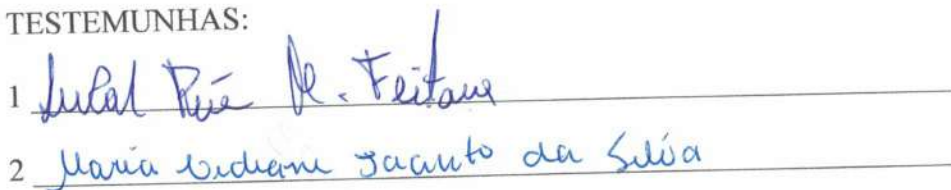 TESTEMUNHAS:
1 M. Feitosa
2 Maria Jacinto da Silva